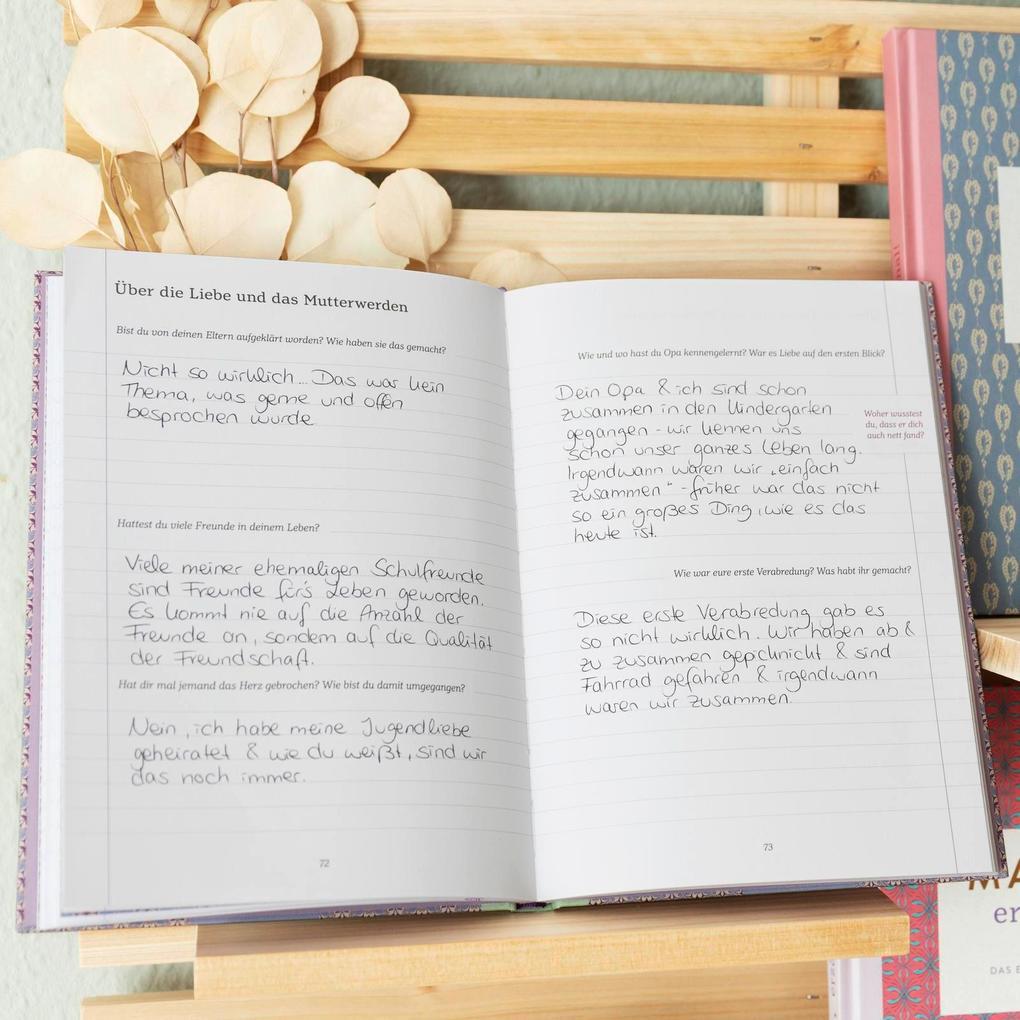 Über die Liebe und das Mutterwerden
Bist du von deinen Eltern aufgeklärt worden? Wie haben sie das gemacht?
Nicht so wirklich... Das war kein
Thema, was gerne und offen
besprochen wurde
Hattest du viele Freunde in deinem Leben?
Viele meiner ehemaligen Schulfreunde
sind Freunde für's Leben geworden.
Es kommt nie auf die Anzahl der
Freunde an, sondern auf die Qualität
der Freundschaft.
Hat dir mal jemand das Herz gebrochen? Wie bist du damit umgegangen?
Nein, ich habe meine Jugendliebe
geheiratet & wie du weißt, sind wir
das noch immer.
72
Wie und wo hast du Opa kennengelernt? War es Liebe auf den ersten Blick?
Dein Opa & ich sind schon
zusammen in den Kindergarten
gegangen - wir kennen uns
schon unser ganzes Leben lang.
Irgendwann waren wir „einfach
zusammen" - früher war das nicht
so ein großes Ding, wie es das
heute ist.
Woher wusstest
du, dass er dich
auch nett fand?
Wie war eure erste Verabredung? Was habt ihr gemacht?
Diese erste Verabredung gab es
so nicht wirklich. Wir haben ab &
zu zusammen gepicknickt & sind
Fahrrad gefahren & irgendwann
waren wir zusammen.
73
MA
er
DAS E